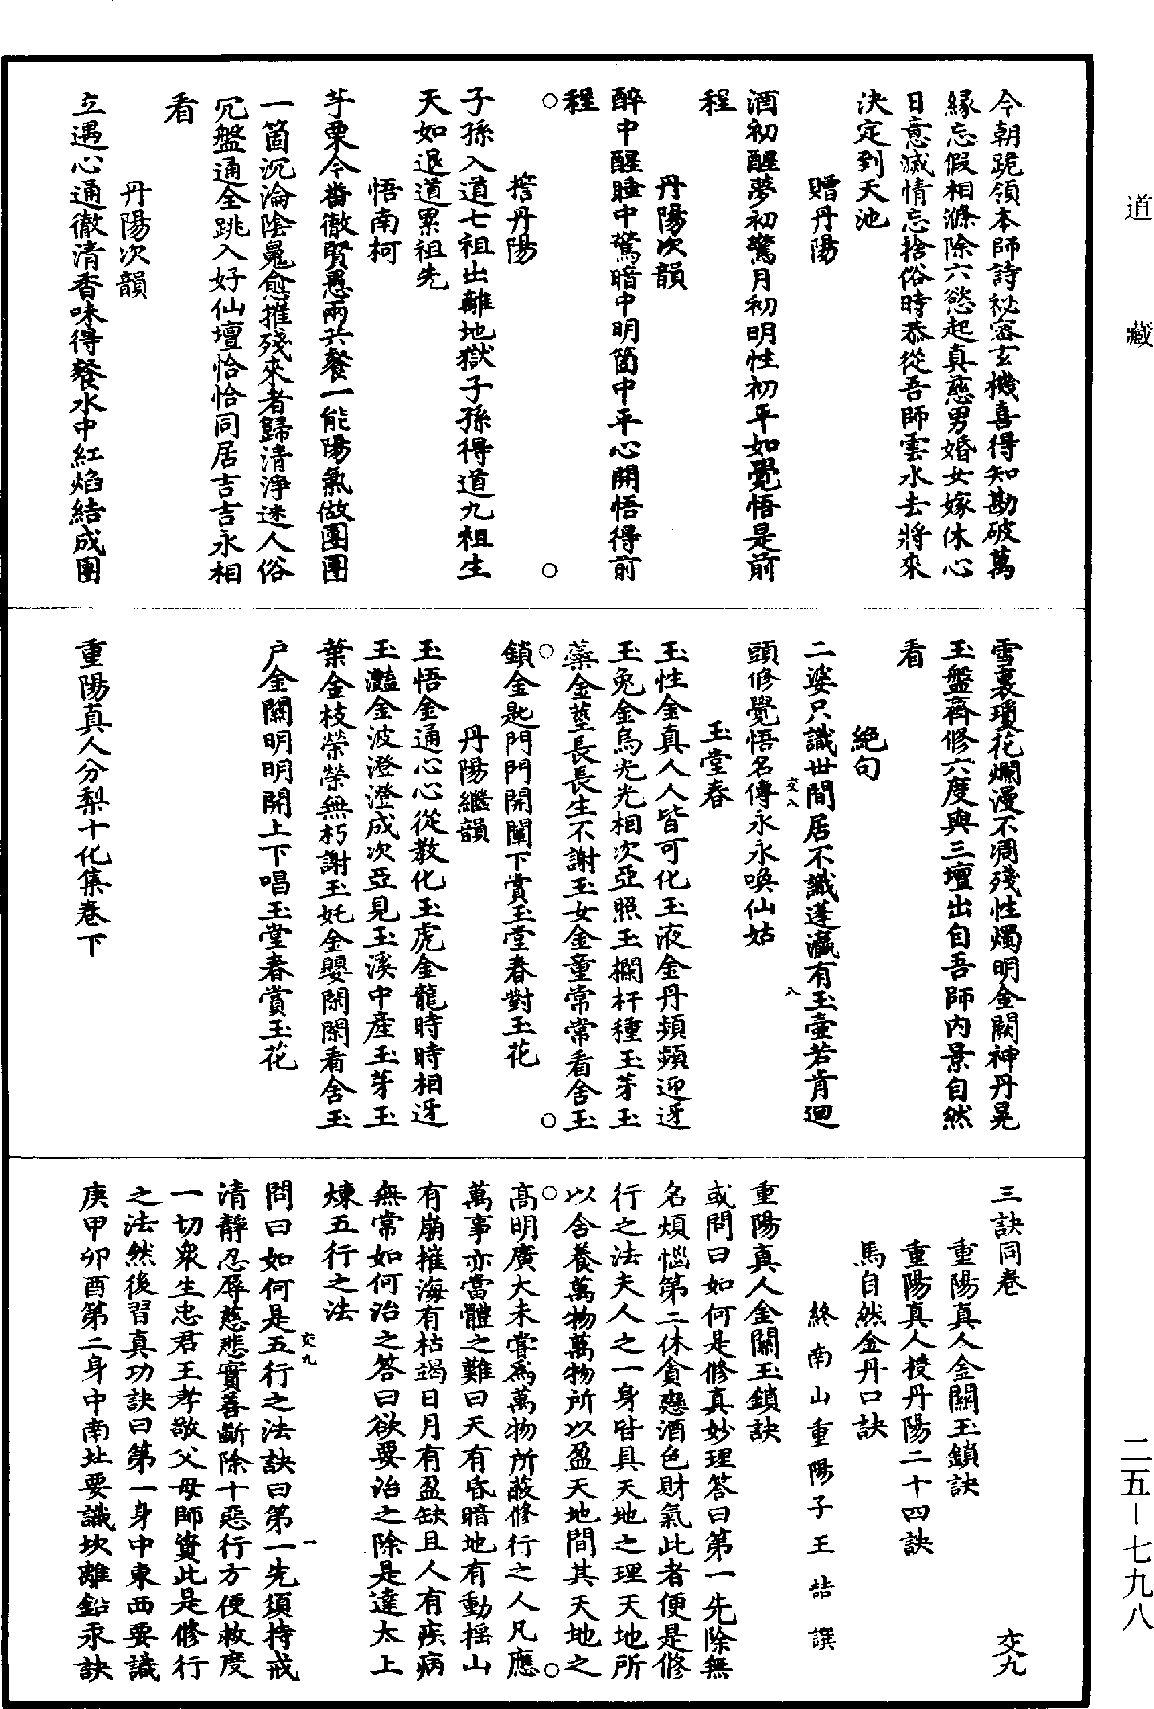 道藏
今朝跪領本師詩祕密玄機喜得知勘破萬
緣忘假相滌除六慾起真慈男婚女嫁休心
日意滅情忘捨俗時恭從吾師雲水去將來
決定到天池
贈丹陽
酒初醒夢初驚月初明性初平如覺悟是前
程
丹陽次韻
醉中醒睡中驚暗中明箇中平心開悟得前
程
擔丹陽
子孫入道七祖出離地獄子孫得道九祖生
天如退道累祖先
悟南柯
芋栗令番徹賢愚兩共餐一能陽氣做團團
一箇沉淪陰鬼愈摧殘來者歸清淨迷人俗
冗盤通全跳入好仙壇恰恰同居吉吉永相
看
丹陽次韻
立遇心通徹清香味得餐水中紅焰結成團
雪裏瓊花爛漫不凋殘性燭明金闕神丹晃
玉盤齊修六度與三壇出自吾師內景自然
看
絕句
二婆只識世間居不識蓬瀛有玉壺若肯迴
交八
八
頭修覺悟名傳永永喚仙姑
玉堂春
玉性金真人人皆可化玉液金丹頻頻迎迓
玉兔金烏光光相次亞照玉欄杆種玉芽玉
藥金莖長長生不謝玉女金童常常看舍玉
鎖金匙門門開闡下賞玉堂春對玉花
丹陽繼韻
玉悟金通心心從教化玉虎金龍時時相迓
玉灩金波澄澄成次亞見玉溪中產玉芽玉
葉金枝榮榮無朽謝玉奼金嬰閑閑看舍玉
戶金關明明開上下唱玉堂春賞玉花
重陽真人分梨十化集卷下
三訣同卷
交九
重陽真人金關玉鎖訣
重陽真人授丹陽二十四訣
馬自然金丹口訣
終南山重陽子王嚞譔
重陽真人金關玉鎖訣
或問曰如何是修真妙理答曰第一先除無
名煩惱第二休貪戀酒色財氣此者便是修
行之法夫人之一身皆具天地之理天地所
以含養萬物萬物所以盈天地間其天地之
高明廣大未嘗為萬物所蔽修行之人凡應
萬事亦當體之難曰天有昏暗地有動搖山
有崩摧海有枯竭日月有盈缺且人有疾病
無常如何治之答曰欲要治之除是達太上
煉五行之法
問曰如何是五行之法訣曰第一先須持戒
交九
一
清靜忍辱慈悲實善斷除十惡行方便救度
一切眾生忠君王孝敬父母師資此是修行
之法然後習真功訣曰第一身中東西要識
庚甲卯酉第二身中南北要識坎離鉛汞訣
二五－七九八